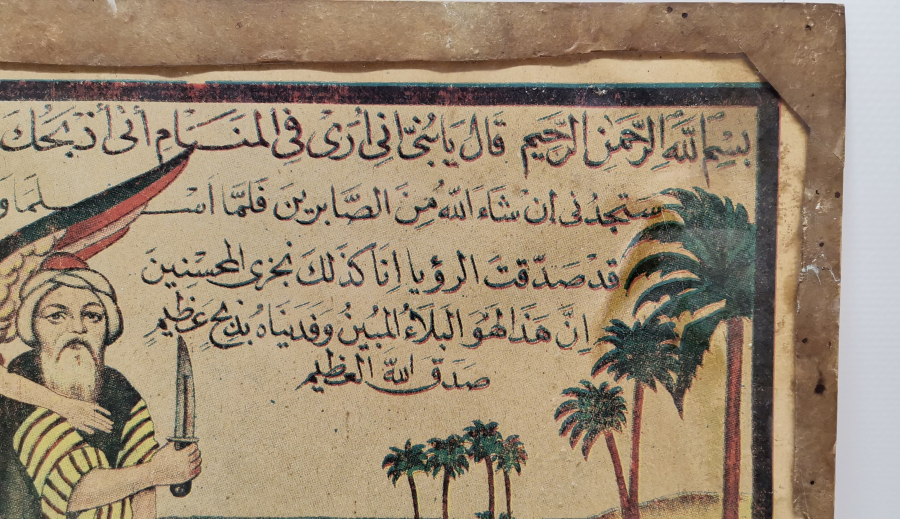 بِسْمِ اللَّهِ الرَّحْمٰنِ الرَّحِيمِ قَالَ يَا بُنَيَّ اِنِّي أَرٰى فِي الْمَنَامِ أَنِّي أَذْبَحُكَ
سَتَجِدُنِي اِنْ شَاءَ اللَّهُ مِنَ الصَّابِرِينَ فَلَمَّا أَسْلَمَا وَ
قَدْ صَدَّقْتَ الرُّؤْيَا اِنَّا كَذَلِكَ نَجْزِي الْمُحْسِنِينَ
اِنَّ هَذَا لَهُوَ الْبَلَاءُ الْمُبِينُ وَفَدَيْنَاهُ بِذِبْحٍ عَظِيمٍ
صَدَقَ اللَّهُ الْعَظِيمُ